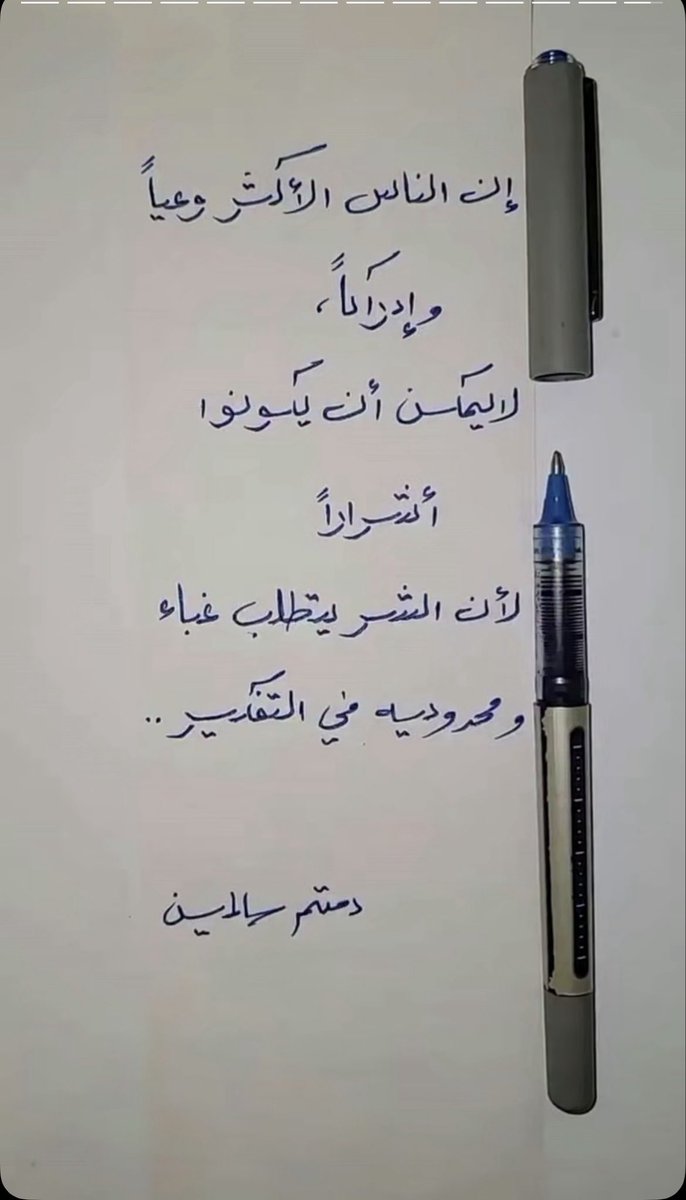 إن الناس الأكثر وعياً
وإدراكاً،
لايمكن أن يكونوا
أشراراً
لأن الشر يتطلب غباء
ومحدوديه في التفكير ..
دمتم سالمين